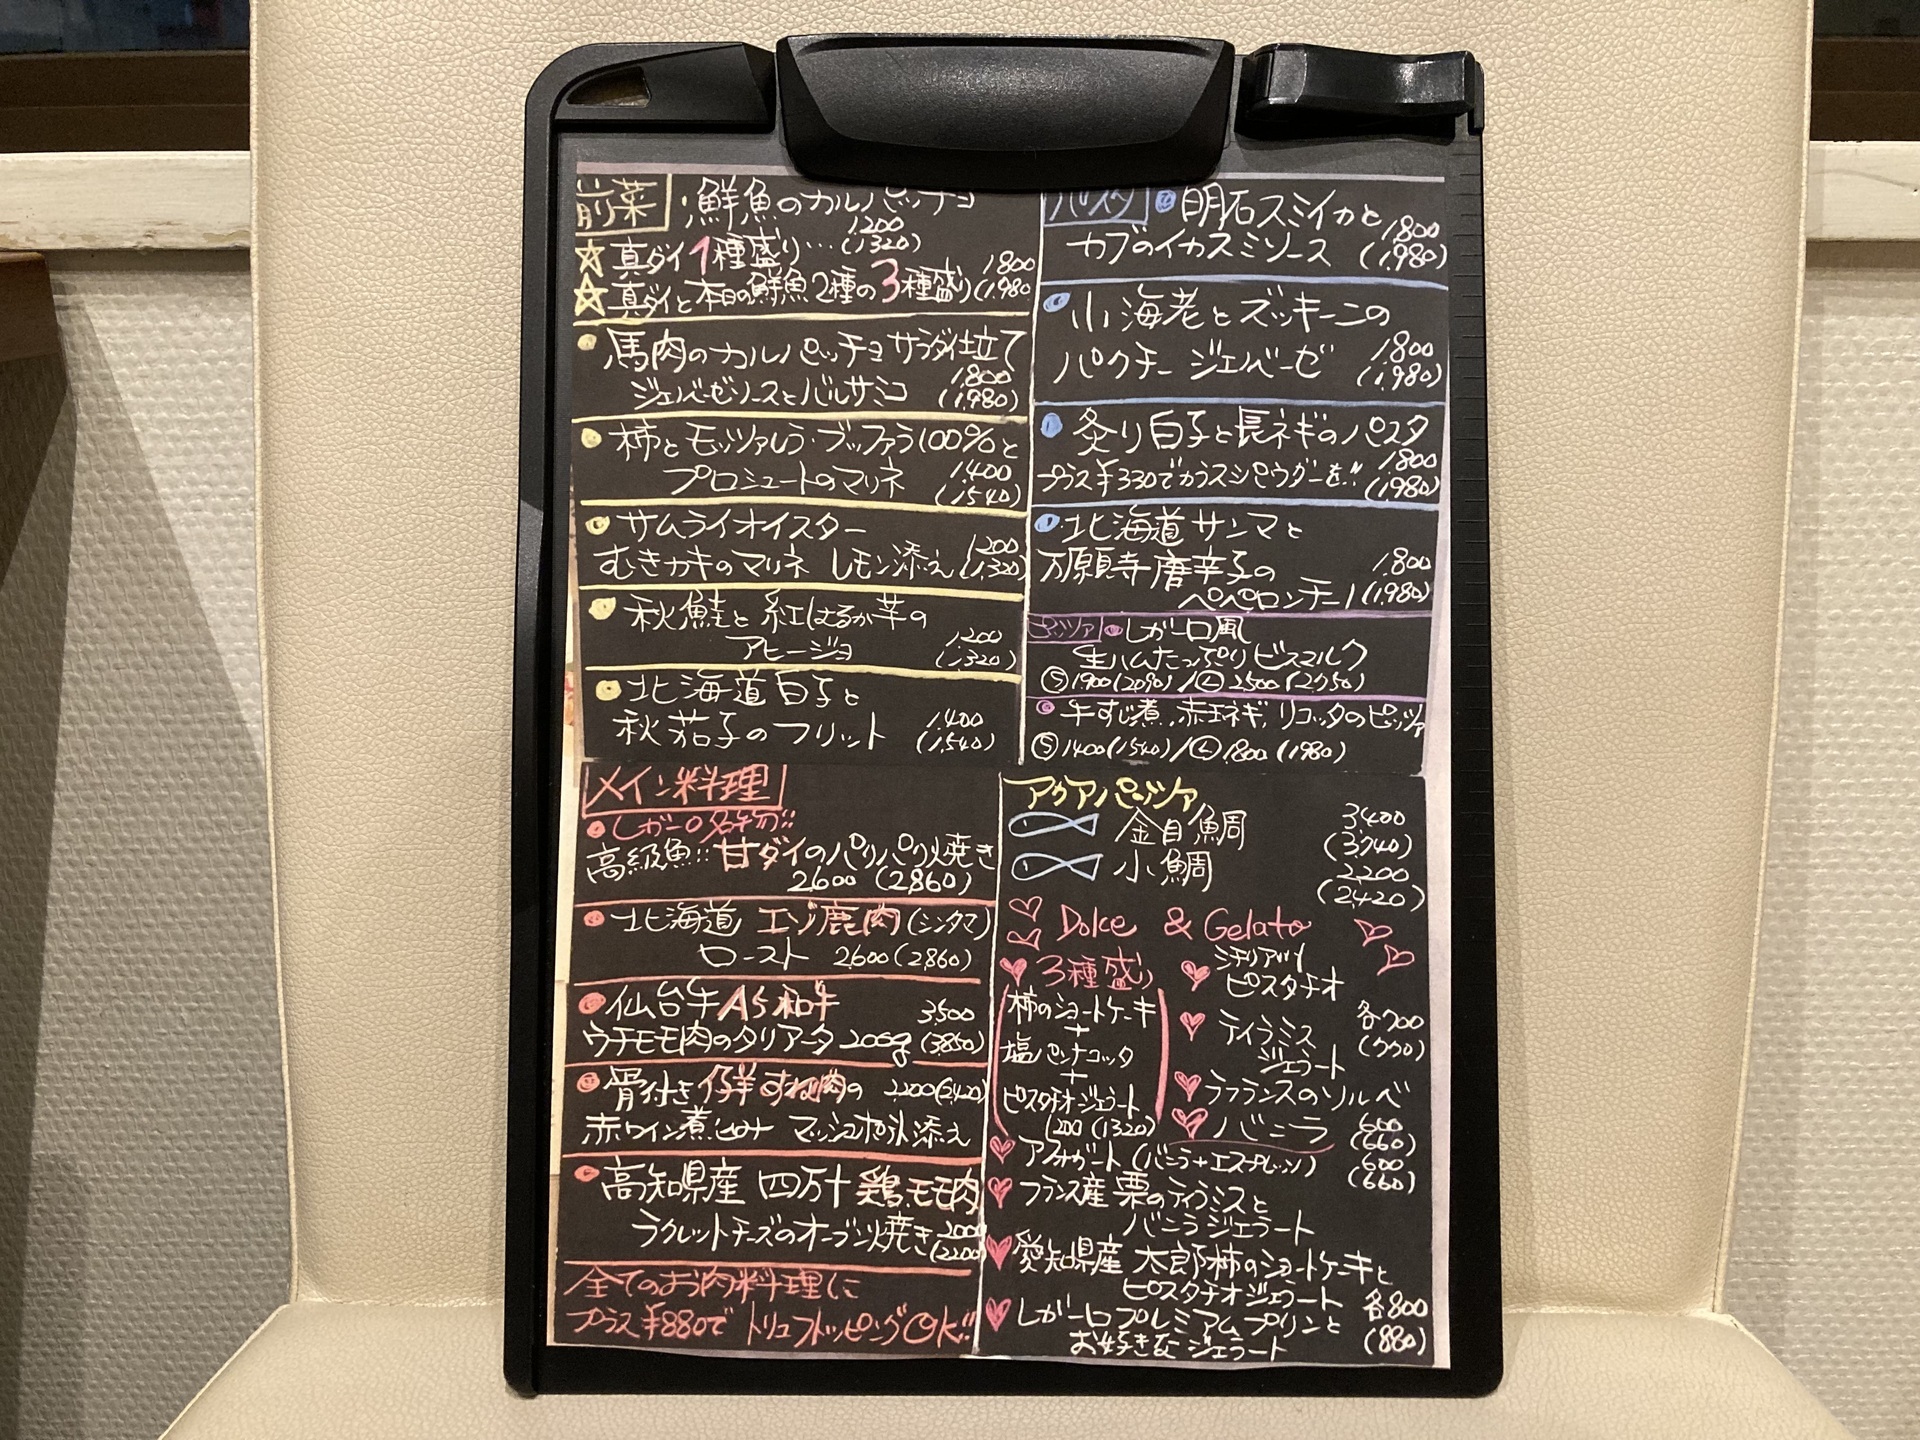 前菜 ・鮮魚のカルパッチョ
1,200
☆真ダイ1種盛り…(1,320)
☆真ダイと本日の鮮魚2種の3種盛り 1,800 (1,980)
●馬肉のカルパッチョサラダ仕立て
ジェノベーゼソースとバルサミコ 1,800 (1,980)
●柿とモッツァレラ・ブッファラ100%と
プロシュートのマリネ 1,400 (1,540)
●サムライオイスター
むきカキのマリネ レモン添え 1,200 (1,320)
●秋鮭と紅はるか芋の
アヒージョ 1,200 (1,320)
●北海道白子と
秋茄子のフリット 1,400 (1,540)
パスタ ●明石スミイカと
カブのイカスミソース 1,800 (1,980)
●小海老とズッキーニの
パクチージェノベーゼ 1,800 (1,980)
●炙り白子と長ネギのパスタ
1,800
プラス¥330でカラスミパウダーを!! (1,980)
●北海道サンマと
万願寺唐辛子の 1,800
ペペロンチーノ (1,980)
ピッツァ ●レガーロ風
生ハムたっぷりビスマルク
Ⓢ1900(2090)/Ⓛ2500(2750)
●牛すじ煮、赤玉ネギ、リコッタのピッツァ
Ⓢ1400(1540)/Ⓛ1,800(1980)
メイン料理
●レガーロ名物!!
高級魚!! 甘ダイのパリパリ焼き
2,600 (2,860)
●北海道 エゾ鹿肉(シンタマ)
ロースト 2,600(2,860)
●仙台牛A5和牛 3,500
ウチモモ肉のタリアータ200g (3,850)
●骨付き仔羊すね肉の 2,200(2,420)
赤ワイン煮込み マッシュポテト添え
●高知県産 四万十鶏モモ肉
ラクレットチーズのオーブン焼き 2,000 (2,200)
全てのお肉料理に
プラス¥880で トリュフトッピングOK!!
アクアパッツァ
金目鯛 3,400 (3,740)
小鯛 2,200 (2,420)
♡ Dolce & Gelato ♡
♥3種盛り
(柿のショートケーキ
+
塩パンナコッタ
+
ピスタチオジェラート)
1,200 (1,320)
♥シチリアAVI
ピスタチオ
♥ティラミス
ジェラート 各700 (770)
♥ラフランスのソルベ
♥バニラ 600 (660)
♥アフォガート(バニラ+エスプレッソ) 600 (660)
♥フランス産栗のティラミスと
バニラジェラート
♥愛知県産 太郎柿のショートケーキと
ピスタチオジェラート 各800
♥レガーロプレミアムプリンと
お好きなジェラート (880)